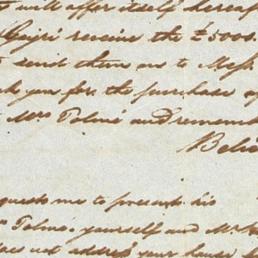 will offer itself
receive the £5000.
send them on to Mess
you for the purchase of
Mrs Tolmé and remem
Beli
quests me to present his
Tolmé, yourself and Mr
not address your house